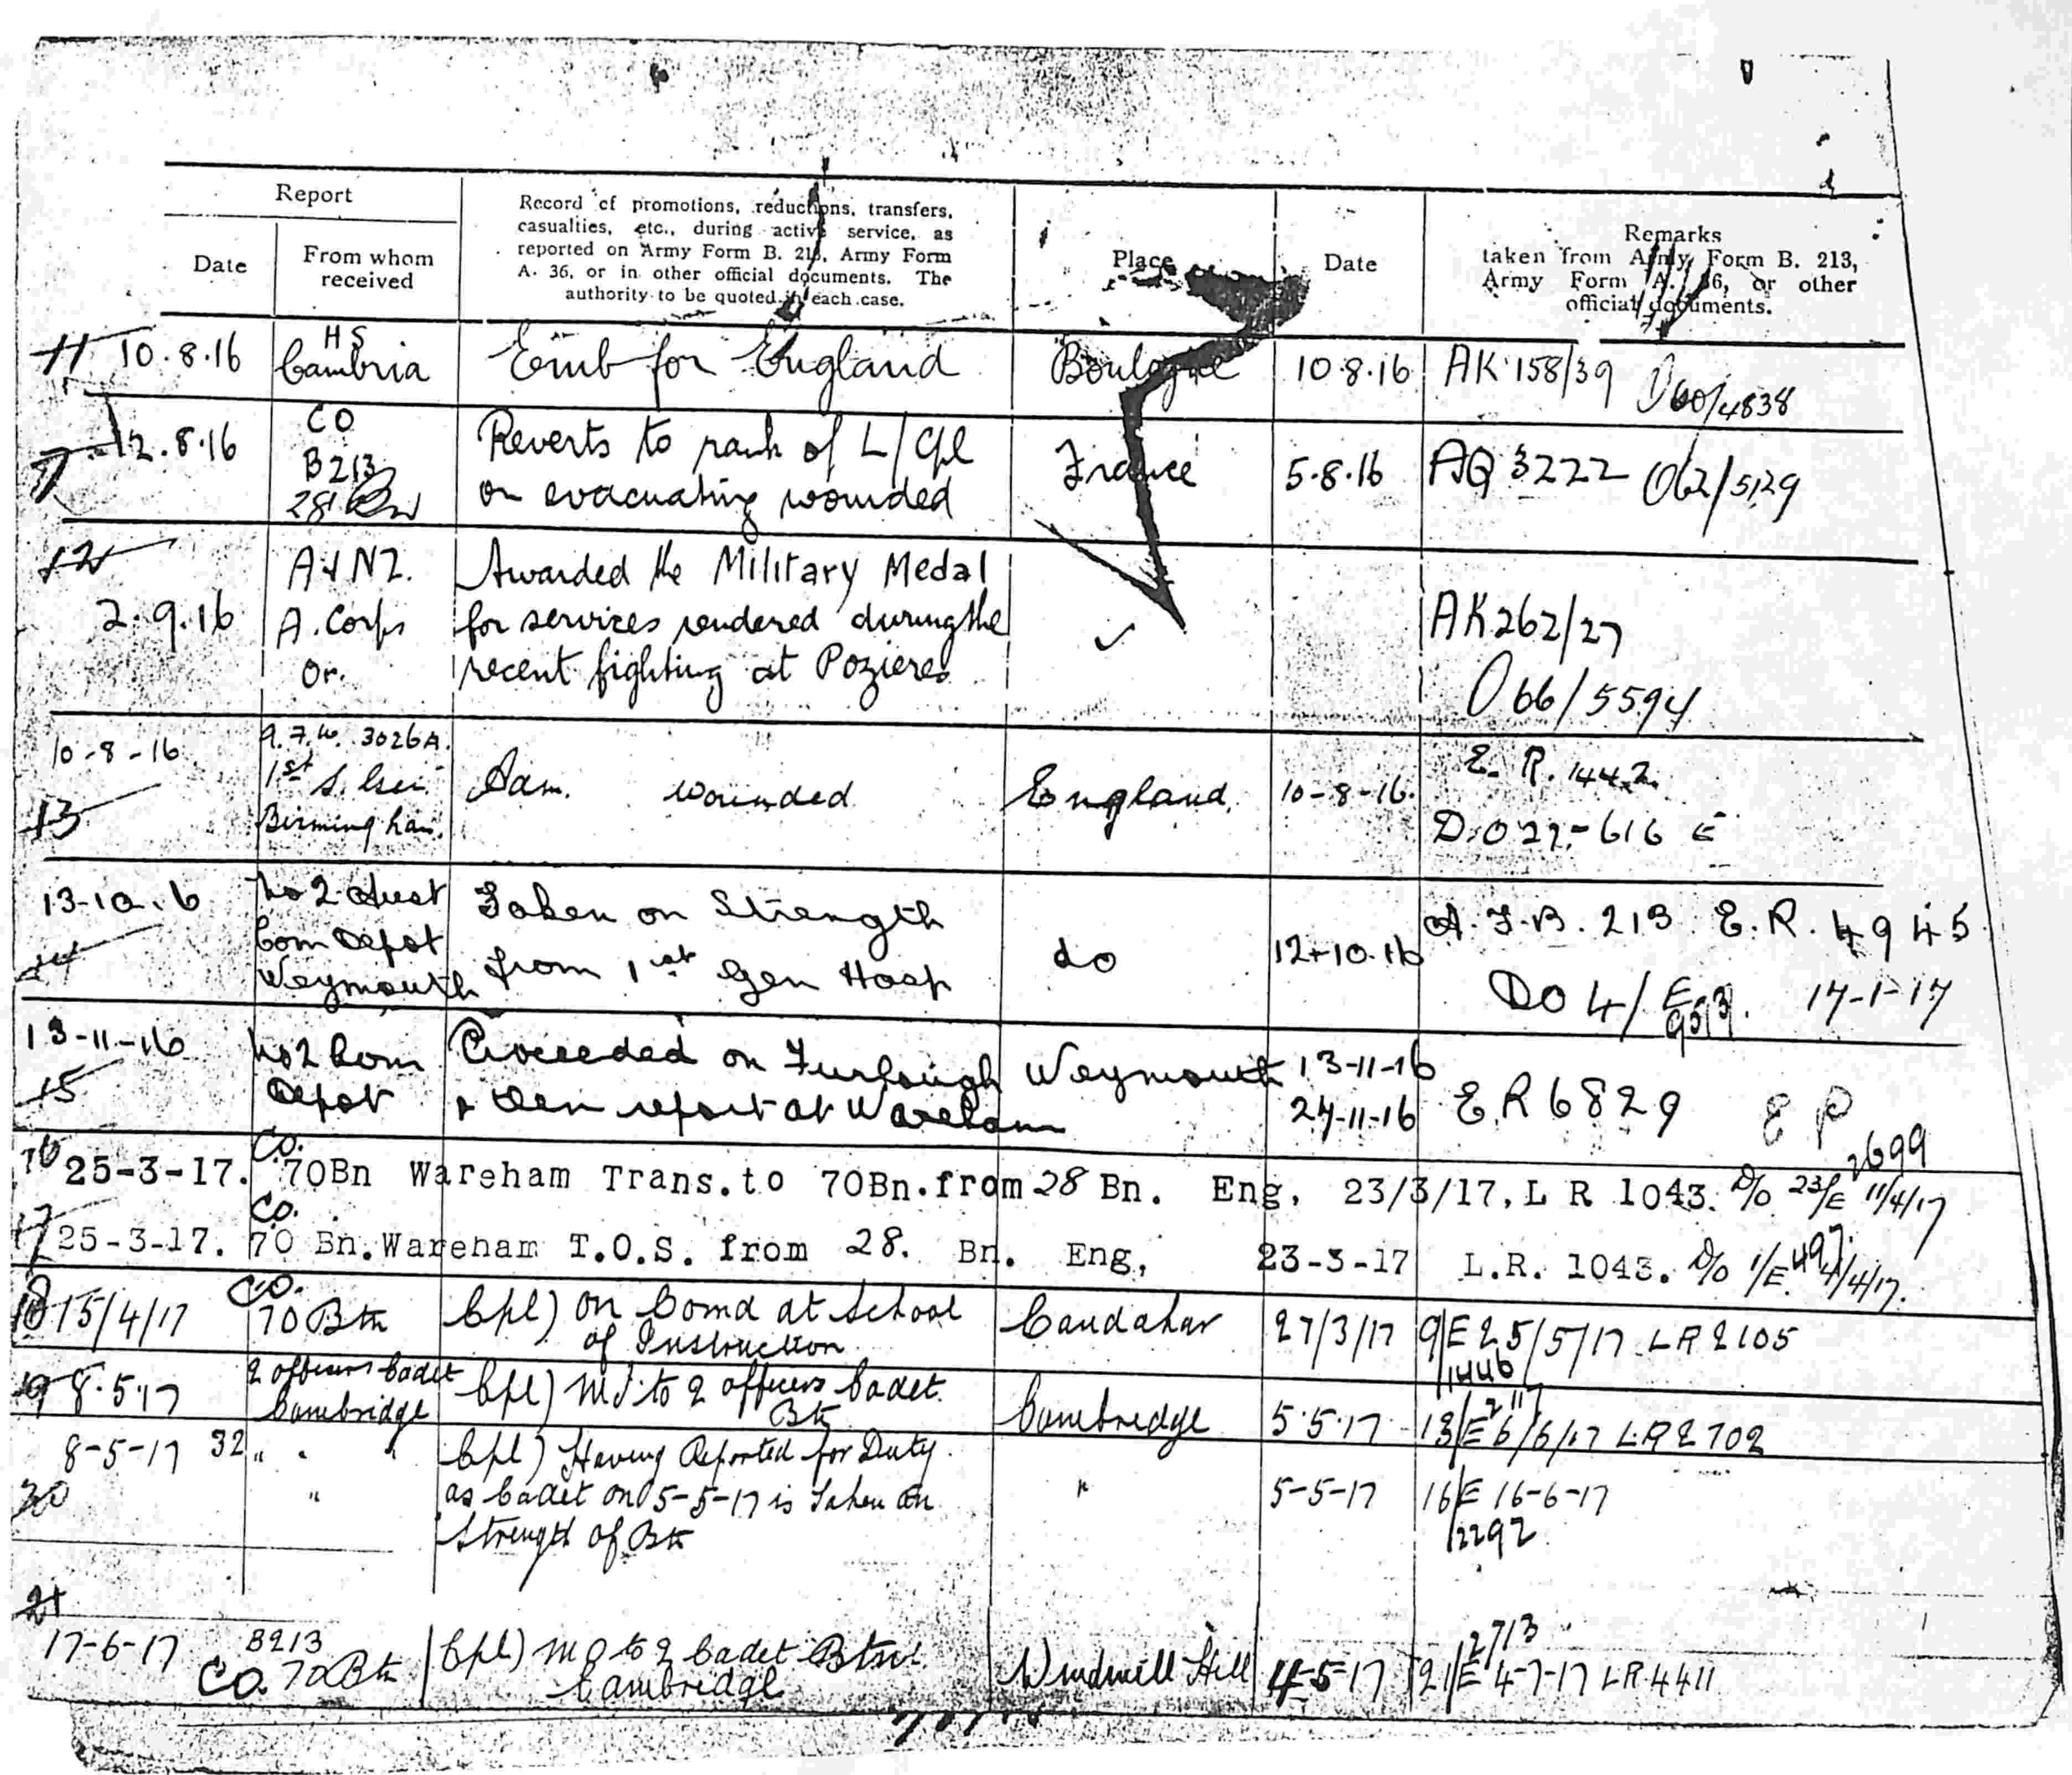 Report
Date
From whom
received
Record of promotions, reductions, transfers,
casualties, etc., during active service, as
reported on Army Form B. 213, Army Form
A. 36, or in other official documents. The
authority to be quoted in each case.
Place
Date
Remarks
taken from Army Form B. 213,
Army Form A. 36, or other
official documents.
11 10.8.16 HS Cambria Emb for England Boulogne 10.8.16 AK 158/39 O60/4838
12.8.16 CO B213 28 Reverts to rank of L/Cpl
on evacuating wounded France 5.8.16 AQ 3222 O62/5129
12
2.9.16 A & NZ. A. Corps Or. Awarded the Military Medal
for services rendered during the
recent fighting at Pozieres AK262/27
O 66/5594
10-8-16 A.F.W. 3026A.
13 1st S. Gen. Birmingham. Adm. wounded England. 10-8-16. E. R. 1442.
D.O 27-616 E
13-10.16 No 2 Aust Com Depot Weymouth
14 Taken on Strength
from 1st Gen Hosp do 12-10.16 A.F.B. 213 E.R. 4945
DO 4/E 17-1-17
13-11-16 No 2 Com Depot
15 Proceeded on Furlough
& then report at Wareham Weymouth 13-11-16
27-11-16 E R 6829 E P
16 25-3-17. CO. 70Bn Wareham Trans.to 70Bn.from 28 Bn. Eng, 23/3/17, L R 1043. D/O 23/E 2699 11/4/17
17 25-3-17. CO. 70 Bn.Wareham T.O.S. from 28. Bn. Eng, 23-3-17 L.R. 1043. D/O 1/E 497 4/4/17.
18 15/4/17 CO. 70 Btn Cpl) on Comd at School
of Instruction Candahar 27/3/17 9/E 25/5/17 LR 2105
1446
19 8.5.17 2 officers Cadet Cambridge Cpl) M.I. to 2 officers Cadet
Btn Cambridge 5.5.17 13/E 2117 6/6/17 L.R 2702
8-5-17 32 " " " Cpl) Having Reported for Duty
20 " as Cadet on 5-5-17 is Taken on " 5-5-17 16/E 16-6-17
Strength of Btn 2292
21
17-6-17 B213 CO. 70 Btn Cpl) M O to 2 Cadet Btn
Cambridge Windmill Hill 4-5-17 21/E 2713 4-7-17 LR 4411